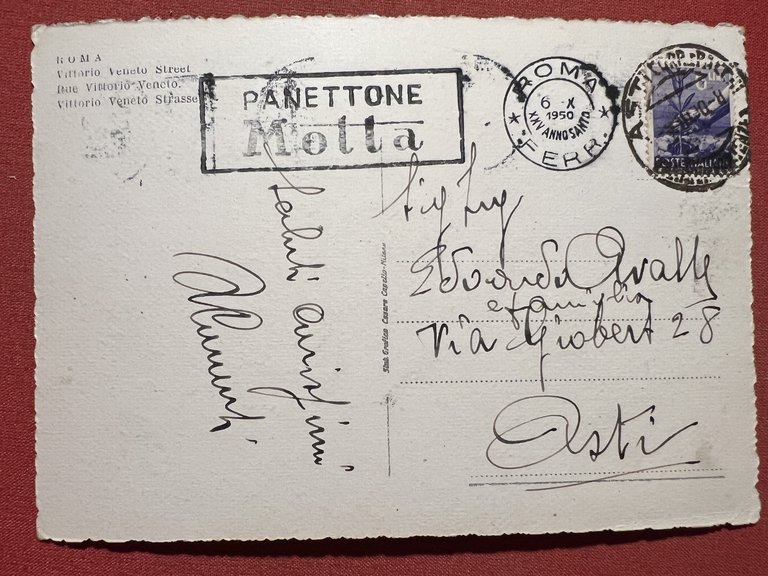 ROMA
Vittorio Veneto Street
Rue Vittorio Veneto.
Vittorio Veneto Strasse
PANETTONE
Motta
ROMA
6 - X
1950
XXV ANNO SANTO
FERR.
ASTI
POSTE ITALIANE
Saluti carissimi
Stab. Grafico Cesare Capello - Milano
Sig Ing
Edoardo Avalle
e famiglia
Via Giobert 28
Asti